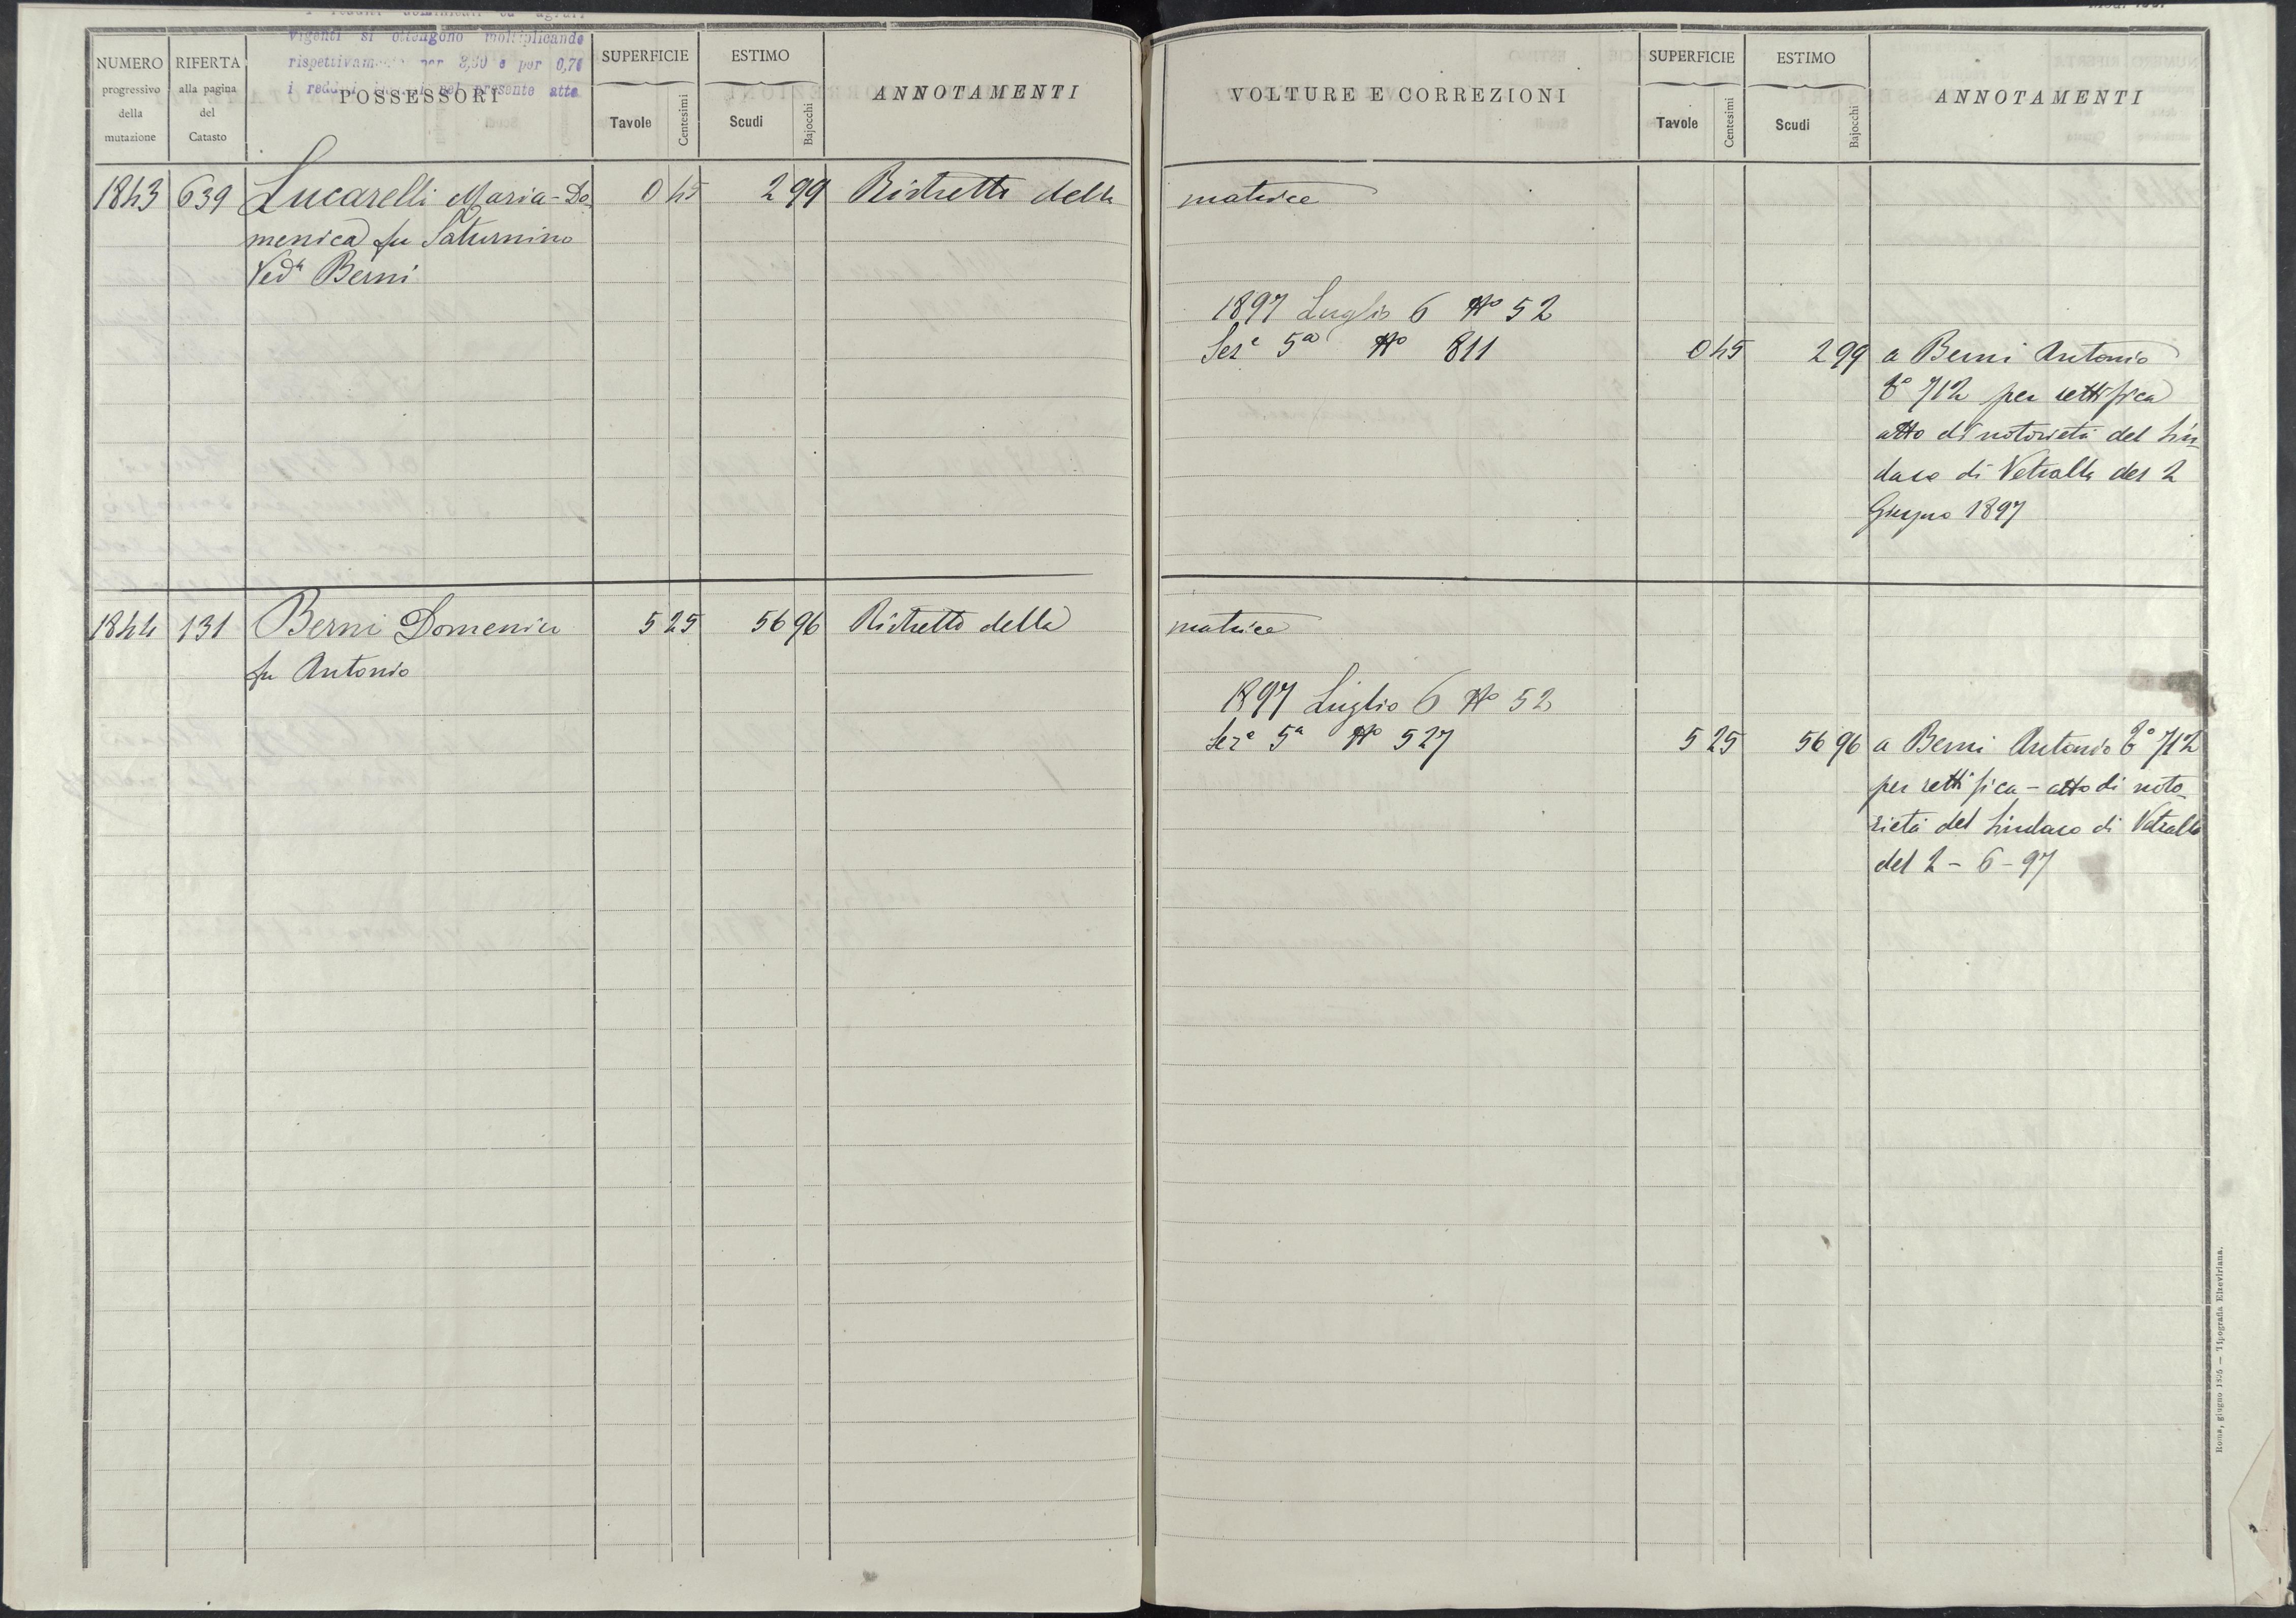 vigenti si ottengono moltiplicando
rispettivamente per 3,30 e per 0,70
i redditi nel presente atto
NUMERO progressivo della mutazione
RIFERTA alla pagina del Catasto
POSSESSORI
SUPERFICIE
Tavole Centesimi
ESTIMO
Scudi Bajocchi
ANNOTAMENTI
1843 639 Lucarelli Maria-Do 0 45 2 99 Ristretto della
menica fu Saturnino
Ved.a Berni
1844 131 Berni Domenica 5 25 56 96 Ristretto della
fu Antonio
VOLTURE E CORREZIONI
SUPERFICIE
Tavole Centesimi
ESTIMO
Scudi Bajocchi
ANNOTAMENTI
matrice
1897 Luglio 6 No 52
Sez.e 5a No 811 0 45 2 99 a Berni Antonio
712 per rettifica
atto di notorietà del Sin-
daco di Vetralla del 2
Giugno 1897
matrice
1897 Luglio 6 No 52
Sez.e 5a No 527 5 25 56 96 a Berni Antonio 712
per rettifica - atto di noto-
rietà del Sindaco di Vetralla
del 2 - 6 - 97
Roma, giugno 1895 — Tipografia Elzeviriana.